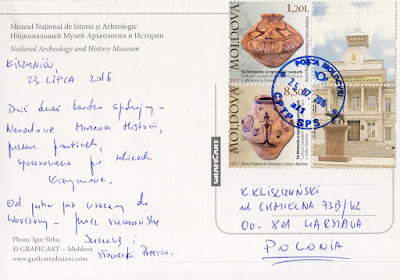 Muzeul Național de Istorie și Arheologie
Национальный Музей Археологии и Истории
National Archeology and History Museum
KISZYNIÓW,
23 LIPCA 2016
Dziś dzień bardzo spokojny -
Narodowe Muzeum Historii,
pisanie kartek,
spacerowanie po ulicach
Kiszyniowa.
Od jutra już wracamy do
Warszawy - przez rumuńskie
i
Photo: Igor Sîrbu
© GRAFICART – Moldova
www.graficartedizioni.com
GRAFICART
MOLDOVA
1,20L
MOLDOVA
8,50L
POȘTA MOLDOVEI
CPTP SPS
K.KLISZCZYŃSKI
ul. CHMIELNA 73B/42
00-801 WARSZAWA
POLONIA